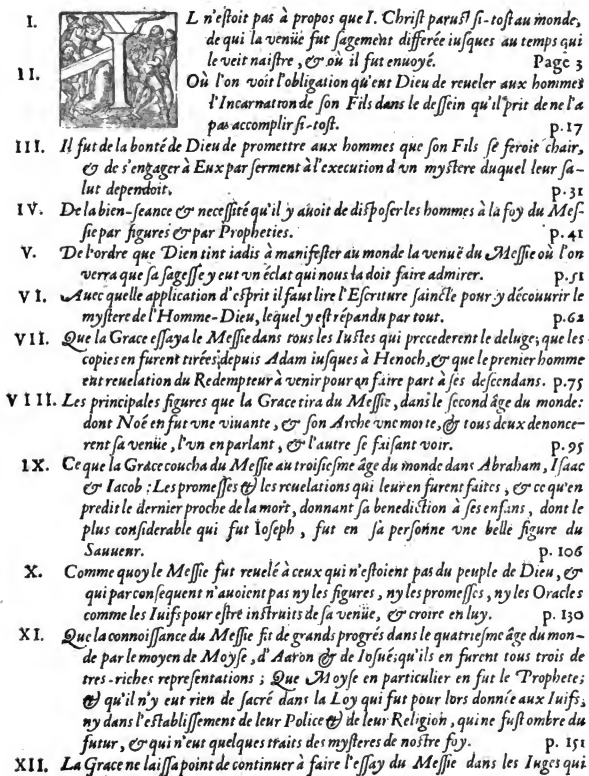 I. IL n'eſtoit pas à propos que I. Chriſt paruſt ſi-toſt au monde,
de qui la venüe fut ſagement differée iuſques au temps qui
le veit naiſtre, & où il fut enuoyé. Page 3
II. Où l'on voit l'obligation qu'eut Dieu de reueler aux hommes
l'Incarnatron de ſon Fils dans le deſſein qu'il prit de ne l'a
pas accomplir ſi-toſt. p. 17
III. Il fut de la bonté de Dieu de promettre aux hommes que ſon Fils ſe feroit chair,
& de s'engager à Eux par ſerment à l'execution d'vn myſtere duquel leur ſa-
lut dependoit. p. 31
IV. De la bien-ſeance & neceſſité qu'il y auoit de diſpoſer les hommes à la foy du Meſ-
ſie par figures & par Propheties. p. 41
V. De l'ordre que Dieu tint iadis à manifeſter au monde la venuë du Meſſie où l'on
verra que ſa ſageſſe y eut vn éclat qui nous la doit faire admirer. p. 51
VI. Auec quelle application d'eſprit il faut lire l'Eſcriture ſaincte pour y découurir le
myſtere de l'Homme-Dieu, lequel y eſt répandu par tout. p. 62
VII. Que la Grace eſſaya le Meſſie dans tous les Iuſtes qui precederent le deluge; que les
copies en furent tirées depuis Adam iuſques à Henoch, & que le premier homme
eut reuelation du Redempteur à venir pour en faire part à ſes deſcendans. p. 75
VIII. Les principales figures que la Grace tira du Meſſie, dans le ſecond âge du monde:
dont Noé en fut vne viuante, & ſon Arche vne morte, & tous deux denonce-
rent ſa venüe, l'vn en parlant, & l'autre ſe faiſant voir. p. 95
IX. Ce que la Grace coucha du Meſſie au troiſieſme âge du monde dans Abraham, Iſaac
& Iacob : Les promeſſes & les reuelations qui leur en furent faites, & ce qu'en
predit le dernier proche de la mort, donnant ſa benediction à ſes enfans, dont le
plus conſiderable qui fut Ioſeph, fut en ſa perſonne vne belle figure du
Sauueur. p. 106
X. Comme quoy le Meſſie fut reuelé à ceux qui n'eſtoient pas du peuple de Dieu, &
qui par conſequent n'auoient pas ny les figures, ny les promeſſes, ny les Oracles
comme les Iuifs pour eſtre inſtruits de ſa venüe, & croire en luy. p. 130
XI. Que la connoiſſance du Meſſie fit de grands progrés dans le quatrieſme âge du mon-
de par le moyen de Moyſe, d'Aaron & de Ioſué; qu'ils en furent tous trois de
tres-riches repreſentations ; Que Moyſe en particulier en fut le Prophete;
& qu'il n'y eut rien de ſacré dans la Loy qui fut pour lors donnée aux Iuifs,
ny dans l'eſtabliſſement de leur Police & de leur Religion, qui ne fuſt ombre du
futur, & qui n'eut quelques traits des myſteres de noſtre foy. p. 151
XII. La Grace ne laiſſa point de continuer à faire l'eſſay du Meſſie dans les Iuges qui